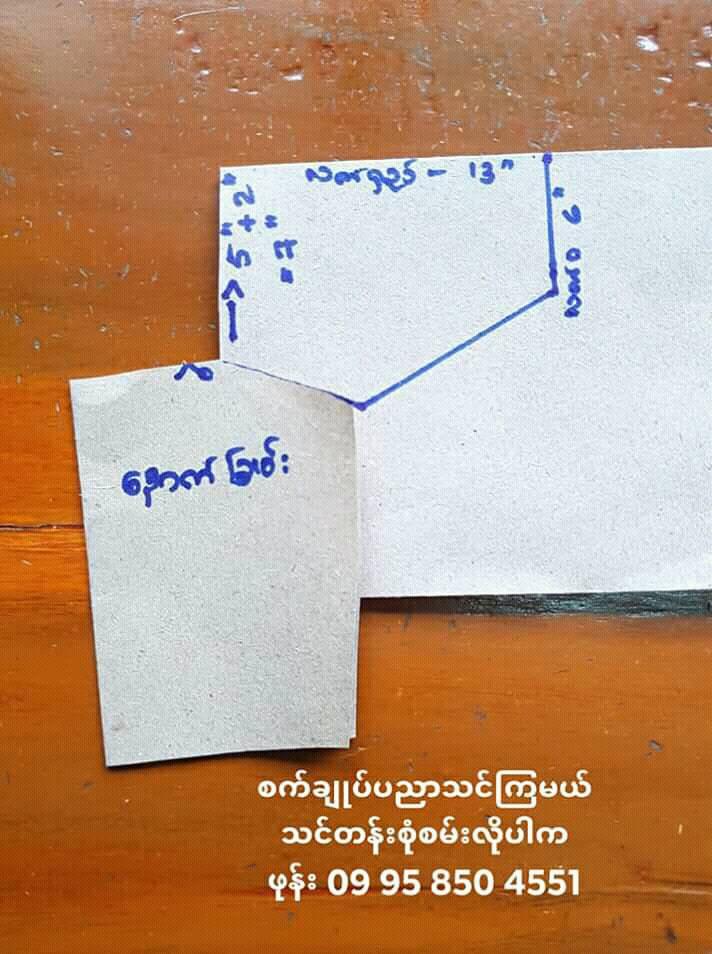 လက်ရှည် - 13"
> 5" + 2"
= 7"
လက်ဝ 6"
နောက်ခြမ်း
စက်ချုပ်ပညာသင်ကြမယ်
သင်တန်းစုံစမ်းလိုပါက
ဖုန်း 09 95 850 4551